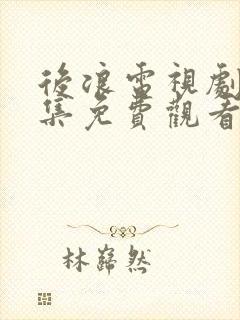 後浪電視劇
集免費觀看
林巋然